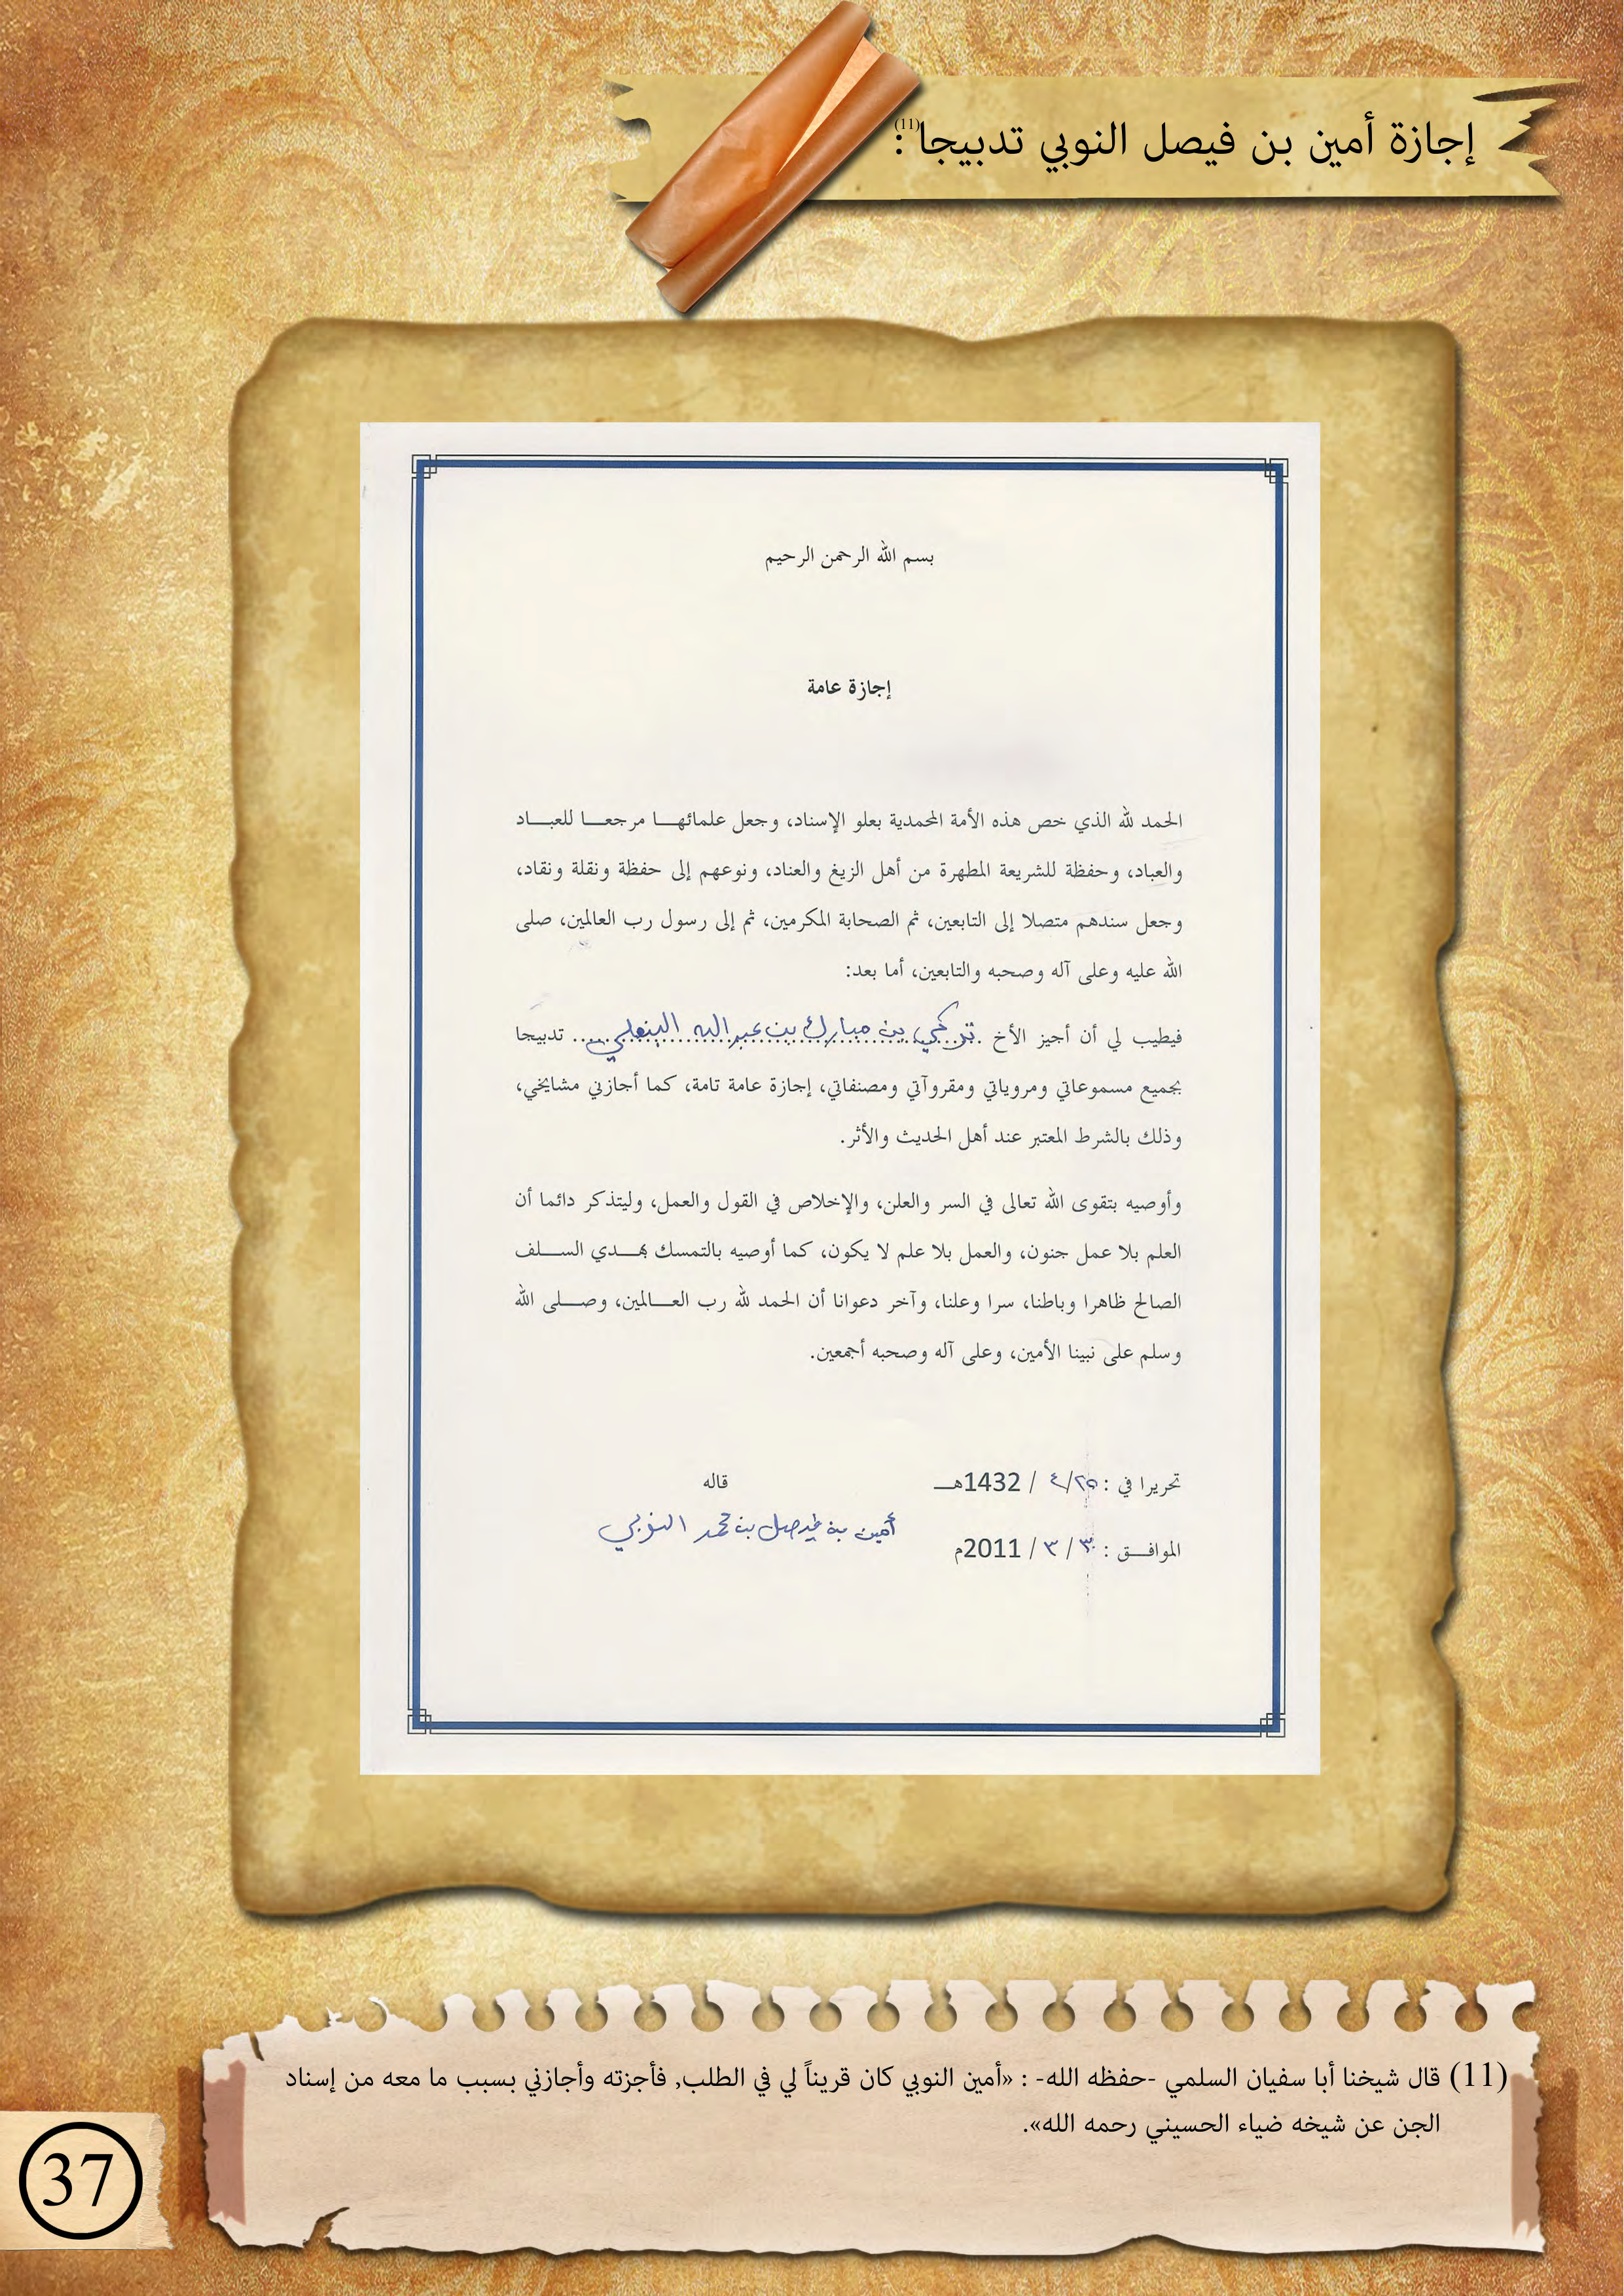 إجازة أمين بن فيصل النوبي تدبيجا(11):
بسم الله الرحمن الرحيم
إجازة عامة
الحمد لله الذي خص هذه الأمة المحمدية بعلو الإسناد، وجعل علمائهـــا مرجعـــا للعبـــاد
والعباد، وحفظة للشريعة المطهرة من أهل الزيغ والعناد، ونوعهم إلى حفظة ونقلة ونقاد،
وجعل سندهم متصلا إلى التابعين، ثم الصحابة المكرمين، ثم إلى رسول رب العالمين، صلى
الله عليه وعلى آله وصحبه والتابعين، أما بعد:
فيطيب لي أن أجيز الأخ تركي بن مبارك بن عبدالله البنعلي ..... تدبيجا
بجميع مسموعاتي ومروياتي ومقروآتي ومصنفاتي، إجازة عامة تامة، كما أجازني مشايخي،
وذلك بالشرط المعتبر عند أهل الحديث والأثر.
وأوصيه بتقوى الله تعالى في السر والعلن، والإخلاص في القول والعمل، وليتذكر دائما أن
العلم بلا عمل جنون، والعمل بلا علم لا يكون، كما أوصيه بالتمسك بهـــدي الســـلف
الصالح ظاهرا وباطنا، سرا وعلنا، وآخر دعوانا أن الحمد لله رب العـــالمين، وصـــلى الله
وسلم على نبينا الأمين، وعلى آله وصحبه أجمعين.
تحريرا في : ٢٥/ ٤ / 1432هـــ
قاله
أمين بن فيصل بن محمد النوبي
الموافـــق : ٣٠ / ٣ / 2011م
(11) قال شيخنا أبا سفيان السلمي -حفظه الله- : «أمين النوبي كان قريناً لي في الطلب, فأجزته وأجازني بسبب ما معه من إسناد
الجن عن شيخه ضياء الحسيني رحمه الله».
37